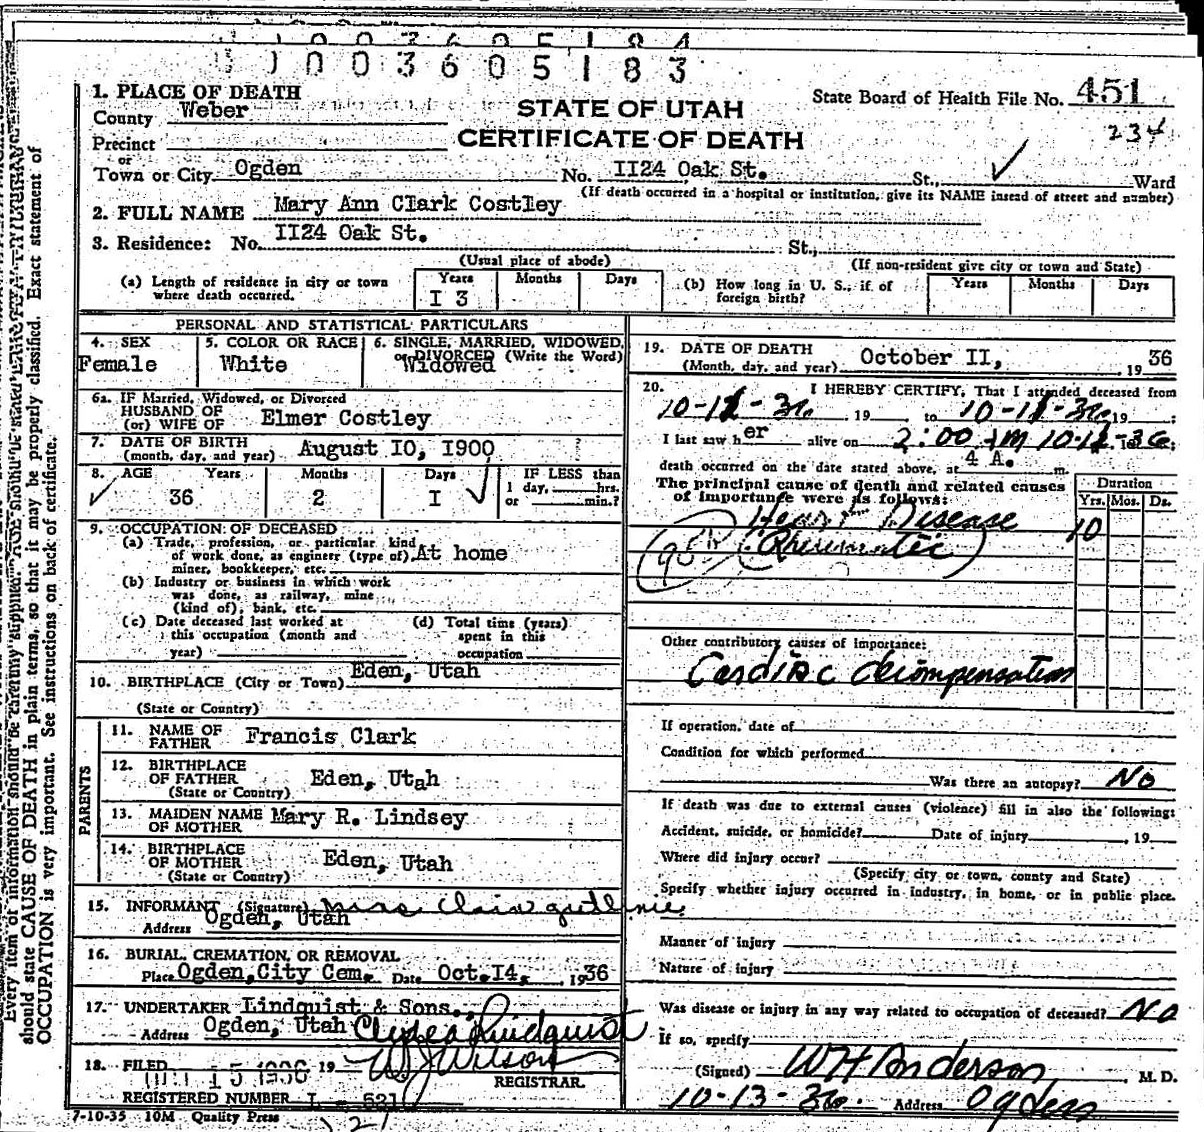 1003605184
1003605183
1. PLACE OF DEATH
County Weber
STATE OF UTAH
CERTIFICATE OF DEATH
State Board of Health File No. 451
234
Precinct
or
Town or City Ogden No. II24 Oak St. St., ✓ Ward
(If death occurred in a hospital or institution, give its NAME instead of street and number)
2. FULL NAME Mary Ann Clark Costley
3. Residence: No. II24 Oak St. St.,
(Usual place of abode) (If non-resident give city or town and State)
(a) Length of residence in city or town where death occurred. Years I 3 Months Days
(b) How long in U. S., if of foreign birth? Years Months Days
PERSONAL AND STATISTICAL PARTICULARS
4. SEX Female
5. COLOR OR RACE White
6. SINGLE, MARRIED, WIDOWED, or DIVORCED (Write the Word) Widowed
6a. IF Married, Widowed, or Divorced
HUSBAND OF
(or) WIFE OF Elmer Costley
7. DATE OF BIRTH
(month, day, and year) August IO, 1900
8. AGE Years 36 Months 2 Days I ✓ IF LESS than 1 day, hrs. or min.?
9. OCCUPATION OF DECEASED
(a) Trade, profession, or particular kind
of work done, as engineer (type of) At home
miner, bookkeeper, etc.
(b) Industry or business in which work
was done, as railway, mine
(kind of), bank, etc.
(c) Date deceased last worked at this occupation (month and year)
(d) Total time (years) spent in this occupation
10. BIRTHPLACE (City or Town) Eden, Utah
(State or Country)
PARENTS
11. NAME OF FATHER Francis Clark
12. BIRTHPLACE OF FATHER Eden, Utah
(State or Country)
13. MAIDEN NAME OF MOTHER Mary R. Lindsey
14. BIRTHPLACE OF MOTHER Eden, Utah
(State or Country)
15. INFORMANT (Signature) Mrs Clair
Address Ogden, Utah
16. BURIAL, CREMATION, OR REMOVAL
Place Ogden City Cem. Date Oct. I4, 1936
17. UNDERTAKER Lindquist & Sons.,
Address Ogden, Utah Clyde Lindquist
18. FILED 15 1936 19 W J Wilson
REGISTRAR
REGISTERED NUMBER
7-10-35 10M Quality Press
19. DATE OF DEATH
(Month, day, and year) October II, 1936
20. I HEREBY CERTIFY, That I attended deceased from
10-11-36, 19 to 10-11-36, 19 ;
I last saw her alive on 2:00 AM 10-11-36,
death occurred on the date stated above, at 4 A. m.
The principal cause of death and related causes
of importance were as follows:
Duration
Yrs. Mos. Ds.
Heart Disease 10
(Rheumatic)
Other contributory causes of importance:
Cardiac decompensation
If operation, date of
Condition for which performed
Was there an autopsy? No
If death was due to external causes (violence) fill in also the following:
Accident, suicide, or homicide? Date of injury , 19
Where did injury occur?
(Specify city or town, county and State)
Specify whether injury occurred in industry, in home, or in public place.
Manner of injury
Nature of injury
Was disease or injury in any way related to occupation of deceased? No
If so, specify
(Signed) W H Anderson, M. D.
10-13-36. Address Ogden
should state CAUSE OF DEATH in plain terms, so that it may be properly classified. Exact statement of
OCCUPATION is very important. See instructions on back of certificate.